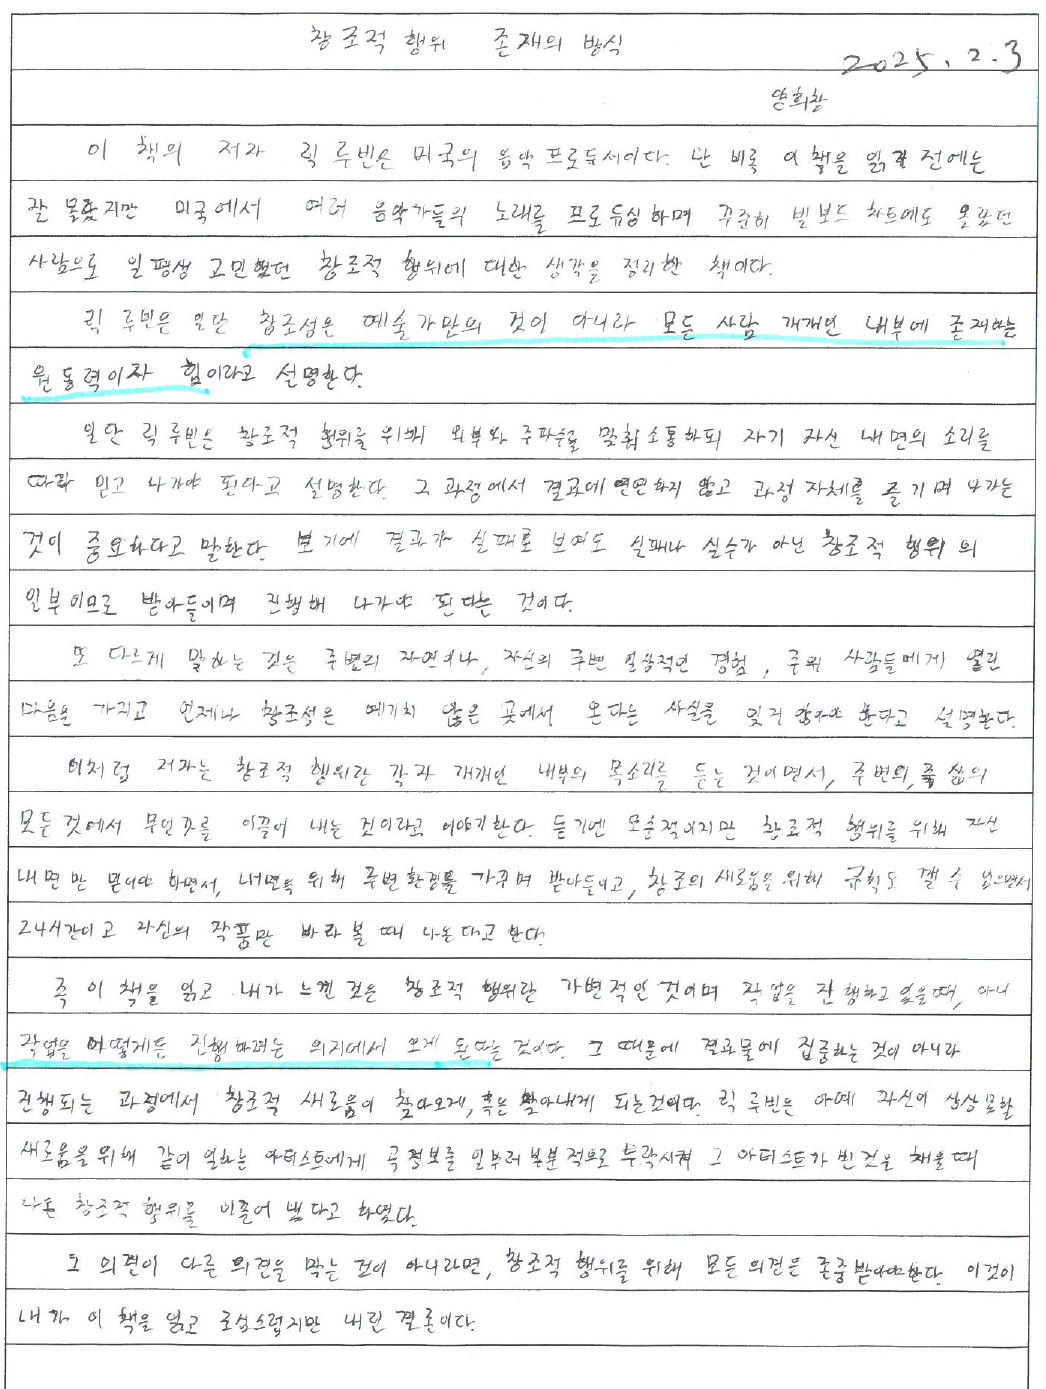 창조적 행위 존재의 방식
2025. 2. 3
양희찬
이 책의 저자 릭 루빈은 미국의 음악 프로듀서이다. 난 비록 이 책을 읽기 전에는
잘 몰랐지만 미국에서 여러 음악가들의 노래를 프로듀싱하며 꾸준히 빌보드 차트에도 올랐던
사람으로 일평생 고민했던 창조적 행위에 대한 생각을 정리한 책이다.
릭 루빈은 일단 창조성은 예술가만의 것이 아니라 모든 사람 개개인 내부에 존재하는
원동력이자 힘이라고 설명한다.
일단 릭 루빈은 창조적 행위를 위해 외부와 주파수를 맞춰 소통하되 자기 자신 내면의 소리를
따라 믿고 나가야 된다고 설명한다. 그 과정에서 결과에 연연하지 않고 과정 자체를 즐기며 나가는
것이 중요하다고 말한다. 보기에 결과가 실패로 보여도 실패나 실수가 아닌 창조적 행위의
일부이므로 받아들이며 진행해 나가야 된다는 것이다.
또 다르게 말하는 것은 주변의 자연이나, 자신의 주변 일상적인 경험, 주위 사람들에게 열린
마음을 가지고 언제나 창조성은 예기치 않은 곳에서 온다는 사실을 잊지 않아야 한다고 설명한다.
이처럼 저자는 창조적 행위란 각자 개개인 내부의 목소리를 듣는 것이면서, 주변의, 삶의
모든 것에서 무언가를 이끌어 내는 것이라고 이야기한다. 듣기엔 모순적이지만 창조적 행위를 위해 자신
내면만 믿어야 하면서, 내면을 위해 주변환경을 가꾸며 받아들이고, 창조의 새로움을 위해 규칙도 깰 수 있으면서
24시간이고 자신의 작품만 바라볼 때 나온다고 한다.
즉 이 책을 읽고 내가 느낀 것은 창조적 행위란 가변적인 것이며 작업을 진행하고 있을때, 아니
작업을 어떻게든 진행하려는 의지에서 오게 된다는 것이다. 그 때문에 결과물에 집중하는 것이 아니라
진행되는 과정에서 창조적 새로움이 찾아오게, 혹은 찾아내게 되는것이다. 릭 루빈은 아예 자신이 상상 못할
새로움을 위해 같이 일하는 아티스트에게 곡 정보를 일부러 부분적으로 누락시켜 그 아티스트가 빈 것을 채울 때
나온 창조적 행위를 이끌어 냈다고 하였다.
그 의견이 다른 의견을 막는 것이 아니라면, 창조적 행위를 위해 모든 의견은 존중받아야한다. 이것이
내가 이 책을 읽고 조심스럽지만 내린 결론이다.